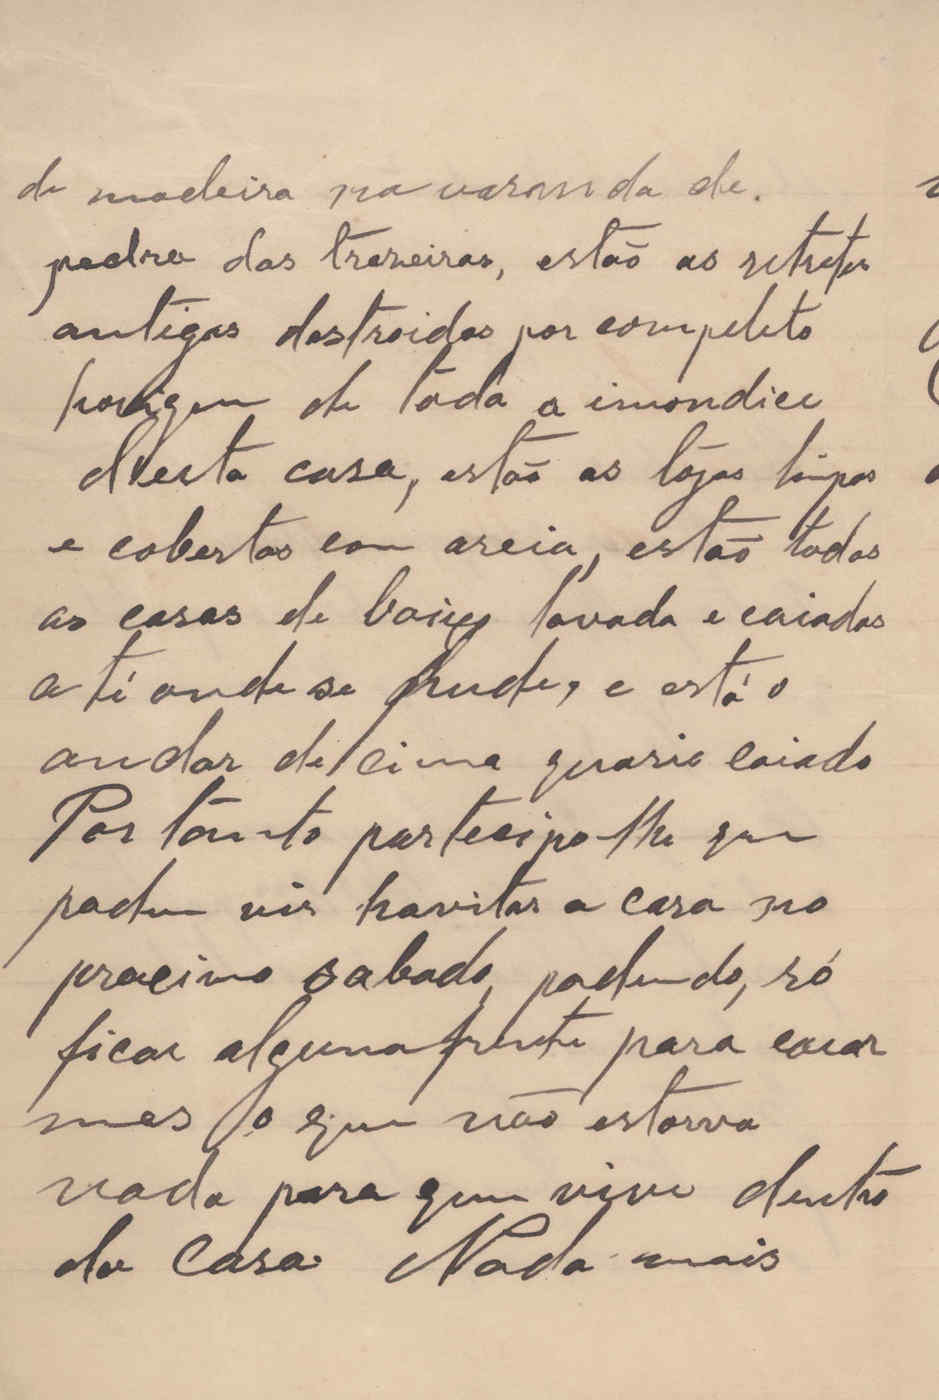 de madeira na varanda de.
pedra das trazeiras, estão as retretes
antigas destroidas por completo
horigem de toda a imondice
d'esta casa, estão as lojas limpas
e cobertas com areia, estão todas
as casas de baixo lavada e caiadas
até onde se pude, e está o
andar de cima quasie caiado
Por tanto partecipo-lhe que
podem vir havitar a casa no
procimo sabado, podendo, só
ficar alguma frente para caiar
mes o que não estorva
nada para quem vive dentro
da Casa. Nada mais